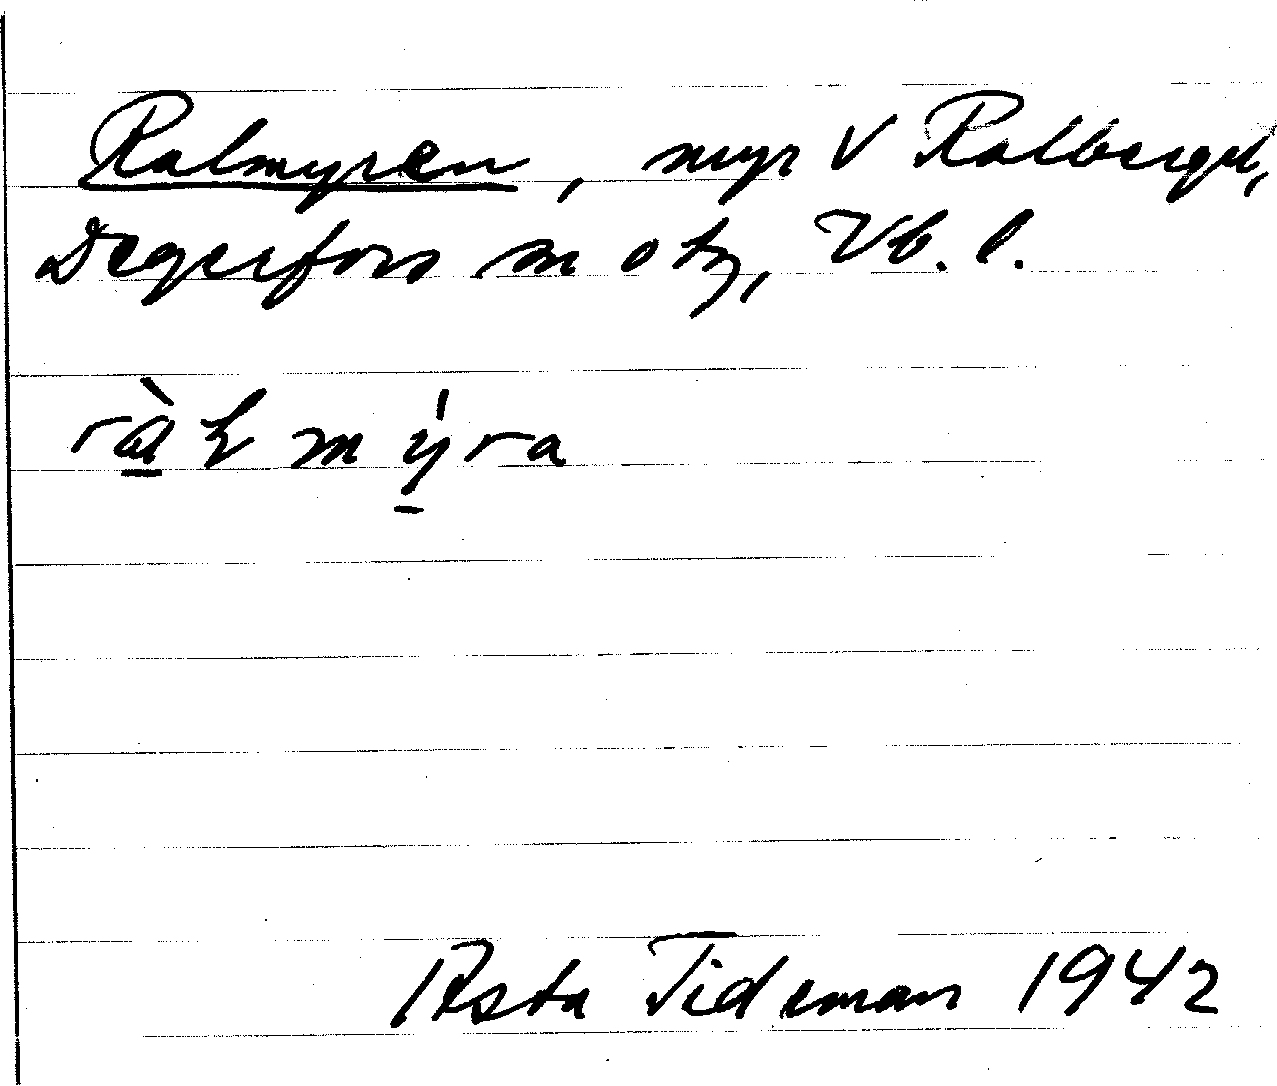 Ralmyren, myr V Ralberget,
Degerfors sn o tg, Vb. l.
ràɫmy̍ra
Asta Tideman 1942